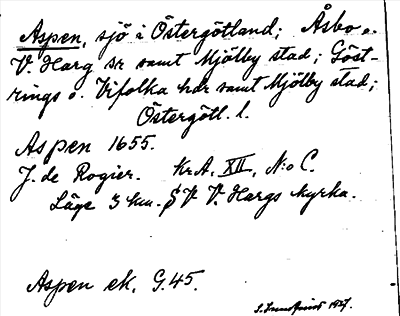 Aspen, sjö i Östergötland; Åsbo o.
V. Harg sr samt Mjölby stad; Göst-
rings o. Vifolka hdr samt Mjölby stad;
Östergötl. l.
Aspen 1655.
J. de Rogier. Kr.A. XII, N:o C.
Läge 3 km. S V V. Hargs kyrka.
Aspen ek. G.45.